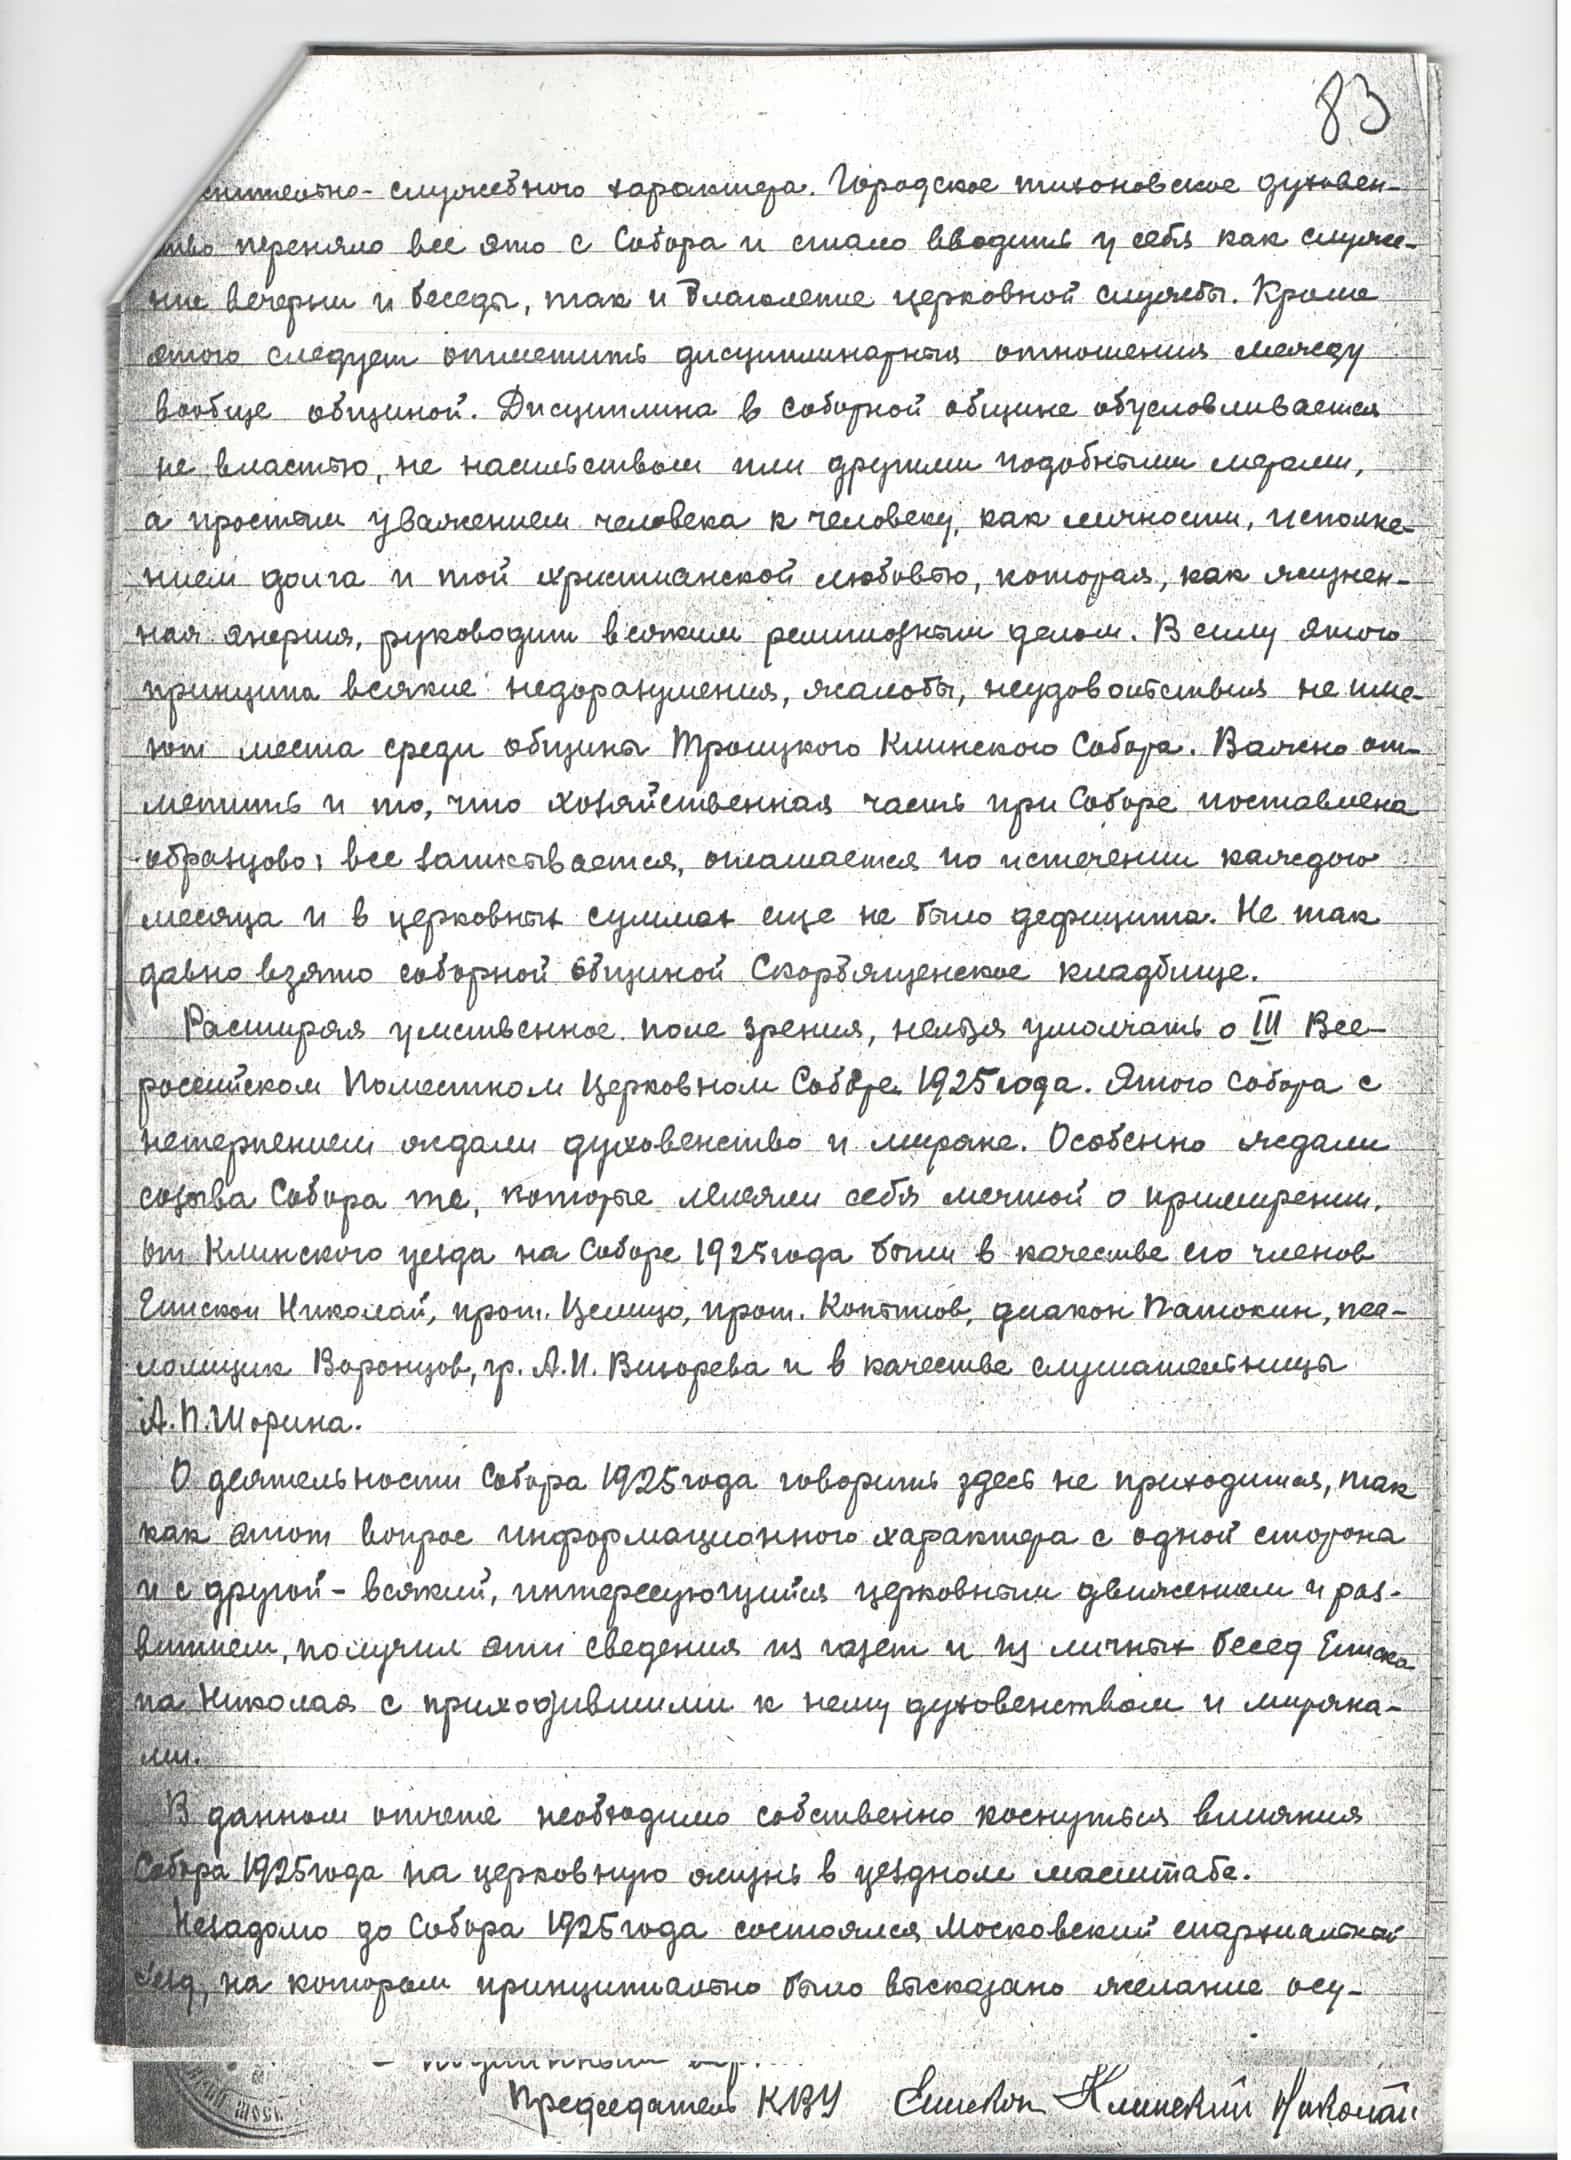 83
служебного характера. Городское тихоновское духовен-
ство переняло все это с Собора и стало вводить у себя как служе-
ние вечерни и беседы, так и благолепие церковной службы. Кроме
этого следует отметить дисциплинарныя отношения между
вообще общиной. Дисциплина в соборной общине обусловливается
не властью, не насильством или другими подобными мерами,
а простым уважением человека к человеку, как личности, исполне-
нием долга и той христианской любовью, которая, как жизнен-
ная энергия, руководит всяким религиозным делом. В силу этого
принципа всякие недоразумения, жалобы, неудовольствия не име-
ют места среди общины Троицкого Клинского Собора. Важно от-
метить и то, что хозяйственная часть при Соборе поставлена
образцово: все записывается, оглашается по истечении каждого
месяца и в церковных суммах еще не было дефицита. Не так
давно взято соборной общиной Скорбященское кладбище.
Расширяя умственное поле зрения, нельзя умолчать о III Все-
российском Поместном Церковном Соборе 1925 года. Этого Собора с
нетерпением ждали духовенство и миряне. Особенно ждали
созыва Собора те, которые лелеяли себя мечтой о примирении.
От Клинского уезда на Соборе 1925 года были в качестве его членов
Епископ Николай, прот. Целищо, прот. Копытов, диакон Патокин, пса-
ломщик Воронцов, гр. А.И. Вихорева и в качестве слушательницы
А.П. Шорина.
О деятельности Собора 1925 года говорить здесь не приходится, так
как этот вопрос информационного характера с одной сторона
и с другой - всякий, интересующийся церковным движением и раз-
витием, получил эти сведения из газет и из личных бесед Еписко
па Николая с приходившими к нему духовенством и миряна-
ми.
В данном отчете необходимо собственно коснуться влияния
Собора 1925 года на церковную жизнь в уездном масштабе.
Незадолго до Собора 1925 года состоялся Московский епархиальный
с'езд, на котором принципиально было высказано желание осу-
Председатель КВУ Епископ Клинский Николай